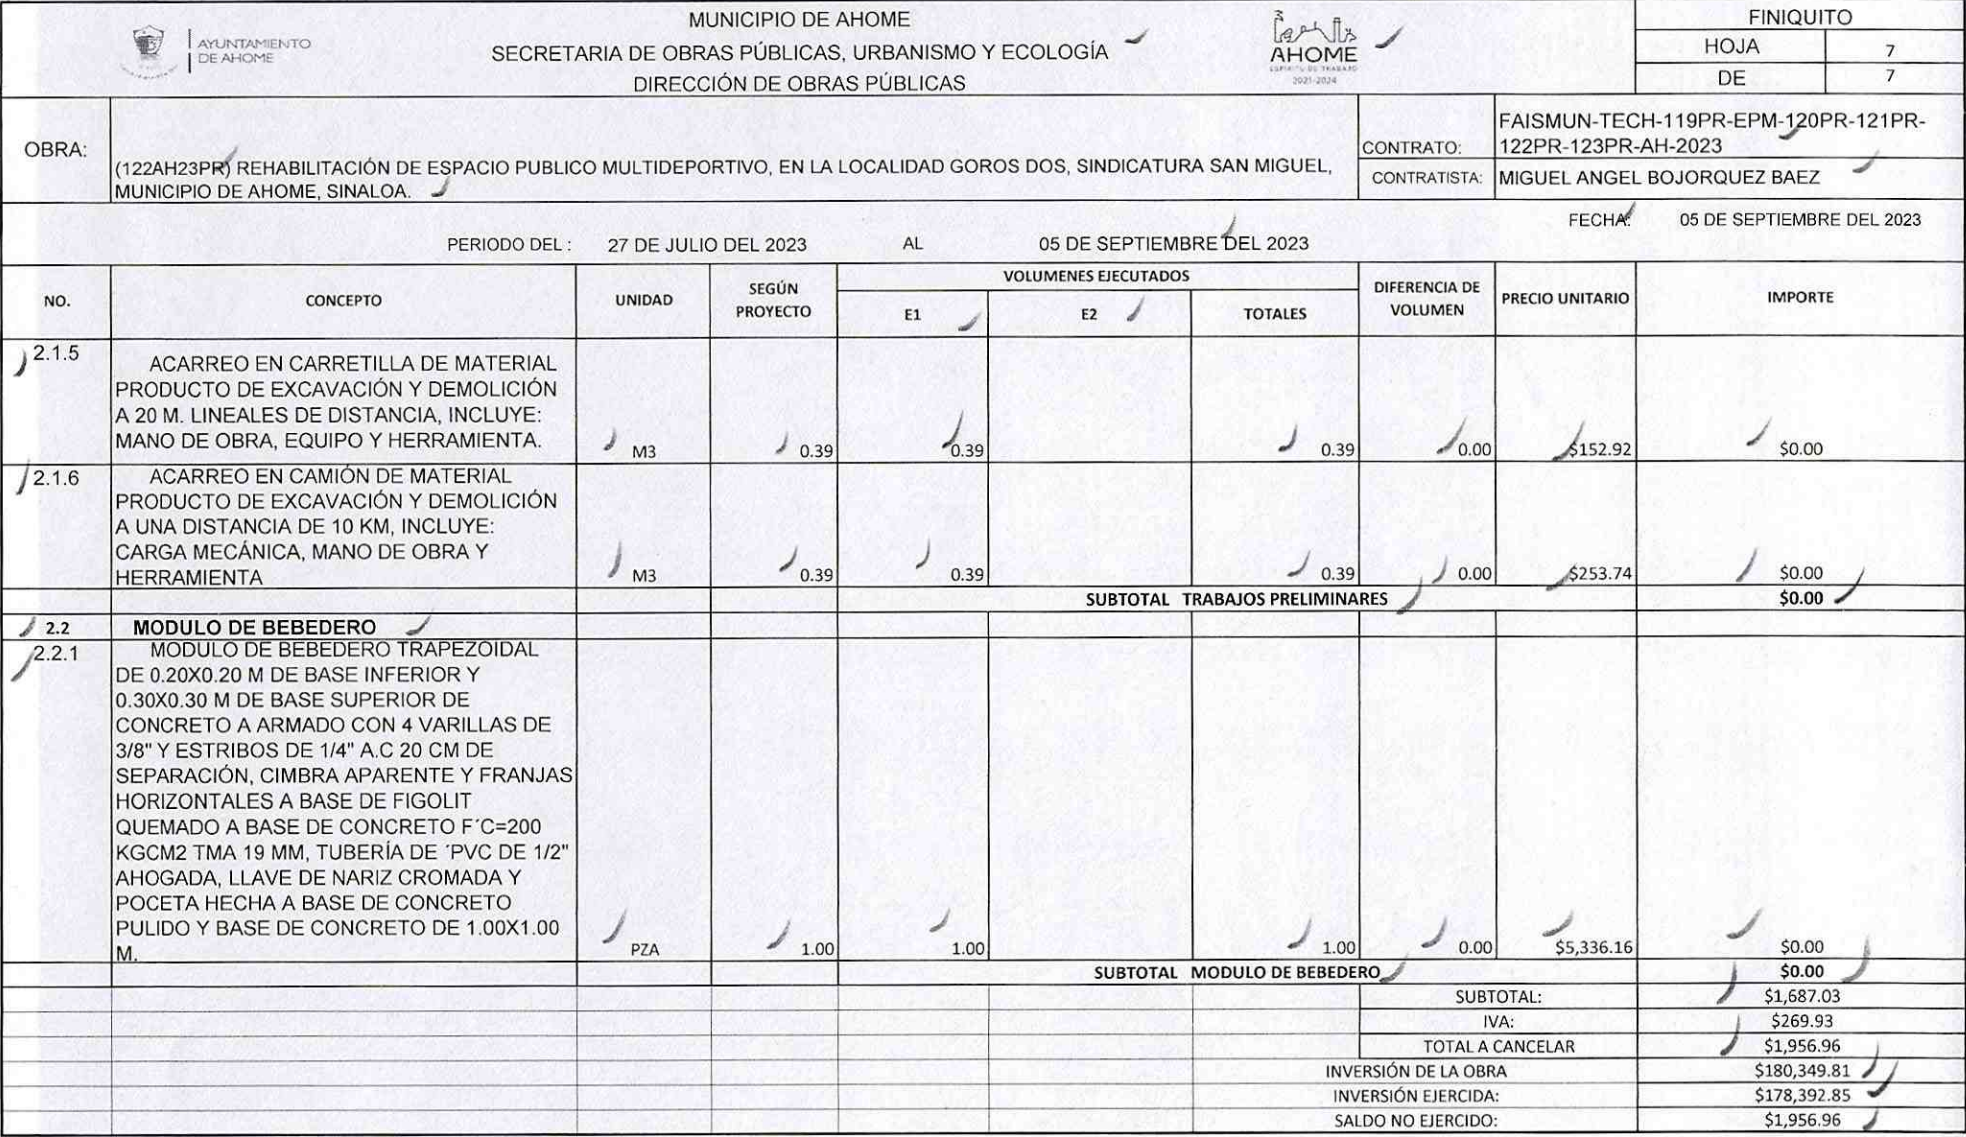 AYUNTAMIENTO
DE AHOME
MUNICIPIO DE AHOME
SECRETARIA DE OBRAS PÚBLICAS, URBANISMO Y ECOLOGÍA
DIRECCIÓN DE OBRAS PÚBLICAS
AHOME
ESPÍRITU DE TRABAJO
2021-2024
FINIQUITO
HOJA 7
DE 7
OBRA:
(122AH23PR) REHABILITACIÓN DE ESPACIO PUBLICO MULTIDEPORTIVO, EN LA LOCALIDAD GOROS DOS, SINDICATURA SAN MIGUEL,
MUNICIPIO DE AHOME, SINALOA.
CONTRATO:
FAISMUN-TECH-119PR-EPM-120PR-121PR-
122PR-123PR-AH-2023
CONTRATISTA: MIGUEL ANGEL BOJORQUEZ BAEZ
FECHA: 05 DE SEPTIEMBRE DEL 2023
PERIODO DEL : 27 DE JULIO DEL 2023 AL 05 DE SEPTIEMBRE DEL 2023
NO. CONCEPTO UNIDAD SEGÚN PROYECTO VOLUMENES EJECUTADOS DIFERENCIA DE VOLUMEN PRECIO UNITARIO IMPORTE
E1 E2 TOTALES
2.1.5 ACARREO EN CARRETILLA DE MATERIAL
PRODUCTO DE EXCAVACIÓN Y DEMOLICIÓN
A 20 M. LINEALES DE DISTANCIA, INCLUYE:
MANO DE OBRA, EQUIPO Y HERRAMIENTA. M3 0.39 0.39 0.39 0.00 $152.92 $0.00
2.1.6 ACARREO EN CAMIÓN DE MATERIAL
PRODUCTO DE EXCAVACIÓN Y DEMOLICIÓN
A UNA DISTANCIA DE 10 KM, INCLUYE:
CARGA MECÁNICA, MANO DE OBRA Y
HERRAMIENTA M3 0.39 0.39 0.39 0.00 $253.74 $0.00
SUBTOTAL TRABAJOS PRELIMINARES $0.00
2.2 MODULO DE BEBEDERO
2.2.1 MODULO DE BEBEDERO TRAPEZOIDAL
DE 0.20X0.20 M DE BASE INFERIOR Y
0.30X0.30 M DE BASE SUPERIOR DE
CONCRETO A ARMADO CON 4 VARILLAS DE
3/8" Y ESTRIBOS DE 1/4" A.C 20 CM DE
SEPARACIÓN, CIMBRA APARENTE Y FRANJAS
HORIZONTALES A BASE DE FIGOLIT
QUEMADO A BASE DE CONCRETO F´C=200
KGCM2 TMA 19 MM, TUBERÍA DE ´PVC DE 1/2"
AHOGADA, LLAVE DE NARIZ CROMADA Y
POCETA HECHA A BASE DE CONCRETO
PULIDO Y BASE DE CONCRETO DE 1.00X1.00
M. PZA 1.00 1.00 1.00 0.00 $5,336.16 $0.00
SUBTOTAL MODULO DE BEBEDERO $0.00
SUBTOTAL: $1,687.03
IVA: $269.93
TOTAL A CANCELAR $1,956.96
INVERSIÓN DE LA OBRA $180,349.81
INVERSIÓN EJERCIDA: $178,392.85
SALDO NO EJERCIDO: $1,956.96